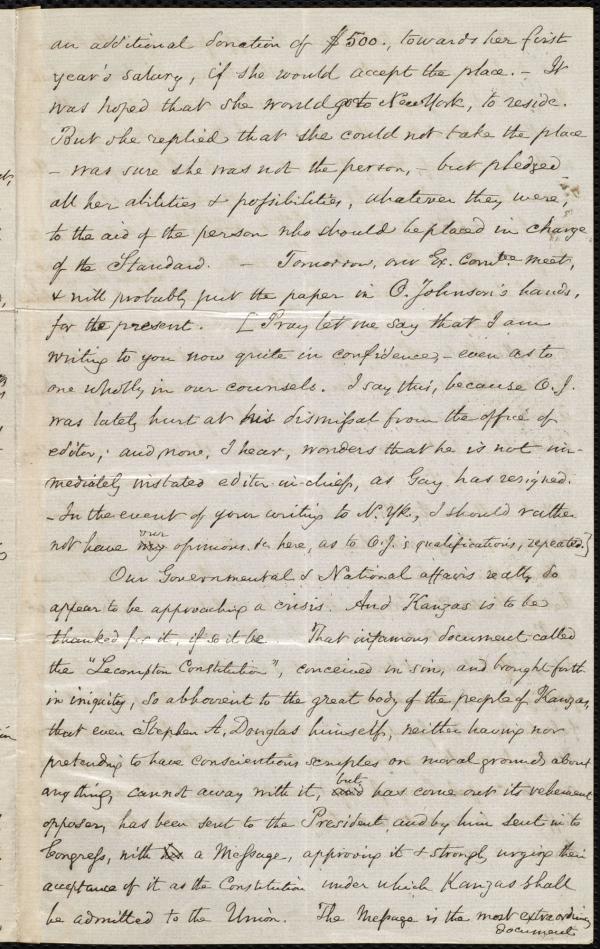 an additional donation of $500., towards her first
year's salary, if she would accept the place. – It
was hoped that she would go to New York, to reside.
But she replied that she could not take the place
– was sure she was not the person, – but pledged
all her abilities & possibilities, whatever they were,
to the aid of the person who should be placed in charge
of the Standard. – Tomorrow, our Ex. Comtee meet,
& will probably put the paper in O. Johnson's hands,
for the present. [Pray let me say that I am
writing to you now quite in confidence, – even as to
one wholly in our counsels. I say this, because O. J.
was lately hurt at his dismissal from the office of
editor; and now, I hear, wonders that he is not im-
mediately instated editor-in-chief, as Gay has resigned.
– In the event of your writing to N. Yk., I should rather
not have our opinions &c here, as to O. J.'s qualifications, repeated.]
Our Governmental & National affairs really do
appear to be approaching a crisis. And Kanzas is to be
thanked for it, if so it be. That infamous document called
the "Lecompton Constitution", conceived in sin, and brought forth
in iniquity, so abhorent to the great body of the people of Kanzas,
that even Stephen A. Douglas himself, neither having nor
pretending to have conscientious scruples on moral grounds about
any thing, cannot away with it, but has come out its vehement
opposer, has been sent to the President, and by him sent in to
Congress, with a Message, approving it & strongly urging their
acceptance of it as the Constitution under which Kanzas shall
be admitted to the Union. The Message is the most extraordinary
document